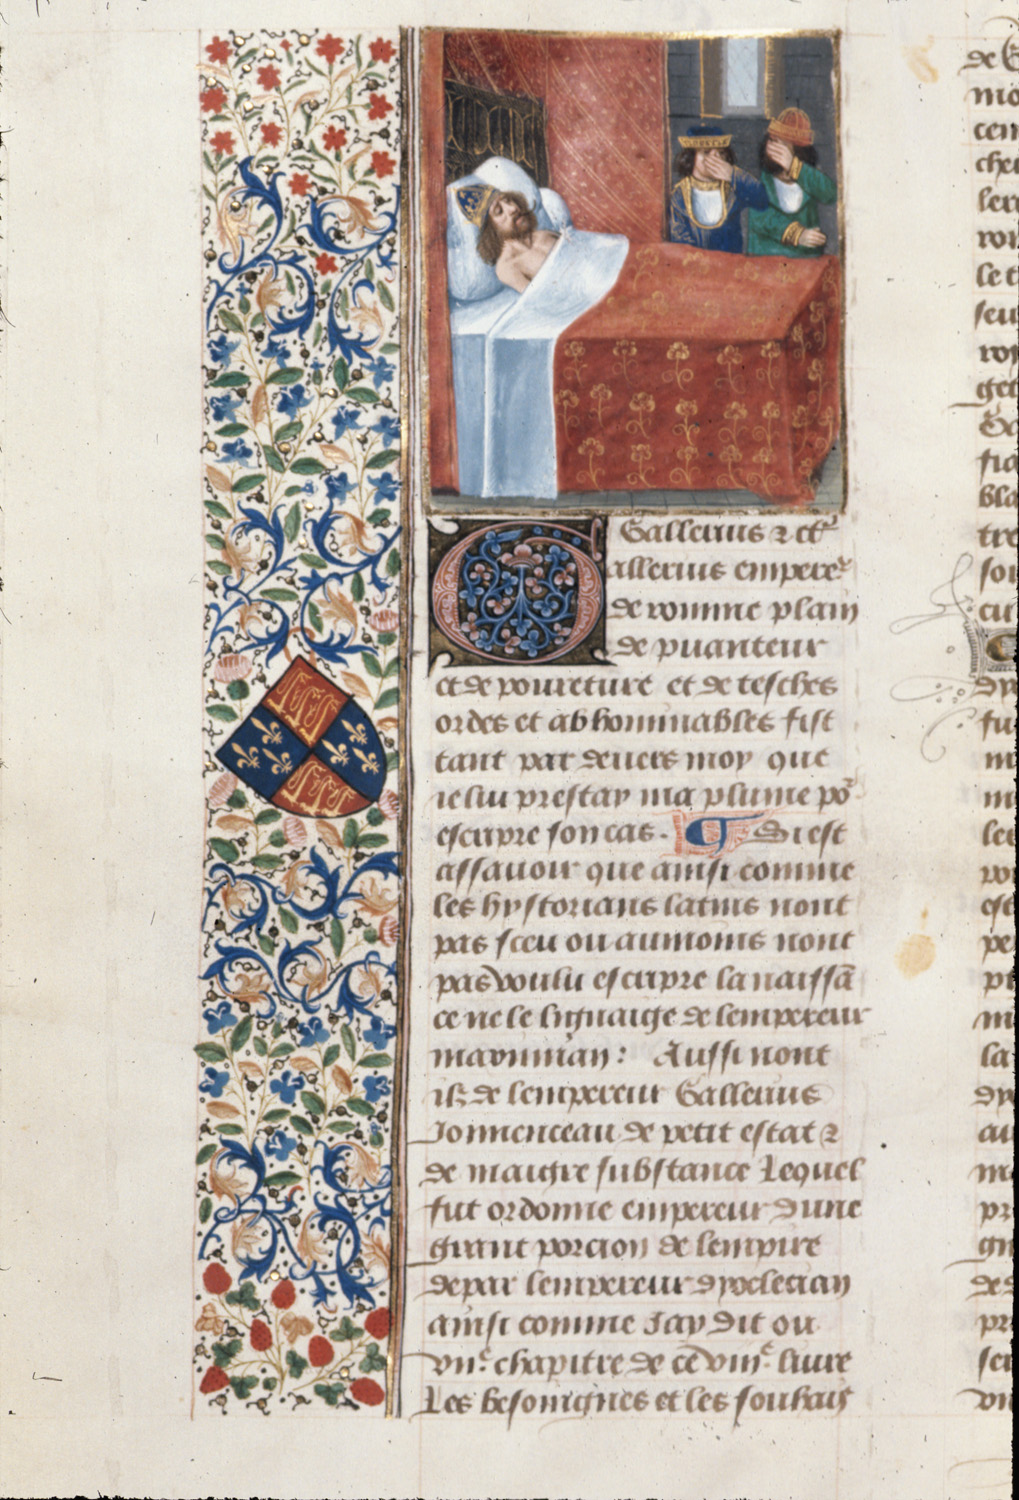 Gallerius (et) ct̃
Gallerius empere(ur)
de romme plain
de puanteur
et de poureture et de tesches
ordes et abhominables fist
tant par deuers moy que
ie lui prestay ma plume po(ur)
escripre son cas. Si est
assauoir que ainsi comme
les hystorians latins nont
pas sceu ou aumoins nont
pas voulu escripre la naissã
ce ne le lignaige de lempereur
maximian: Aussi nont
ilz de lempereur Gallerius
Jonnenceau de petit estat (et)
de maigre substance Lequel
fut ordonne empereur dune
grant porcion de lempire
de par lempereur dyoclecian
ainsi comme Jay dit ou
vii.e chapitre de ce viii.e liure
Les besoingnes et les souhais